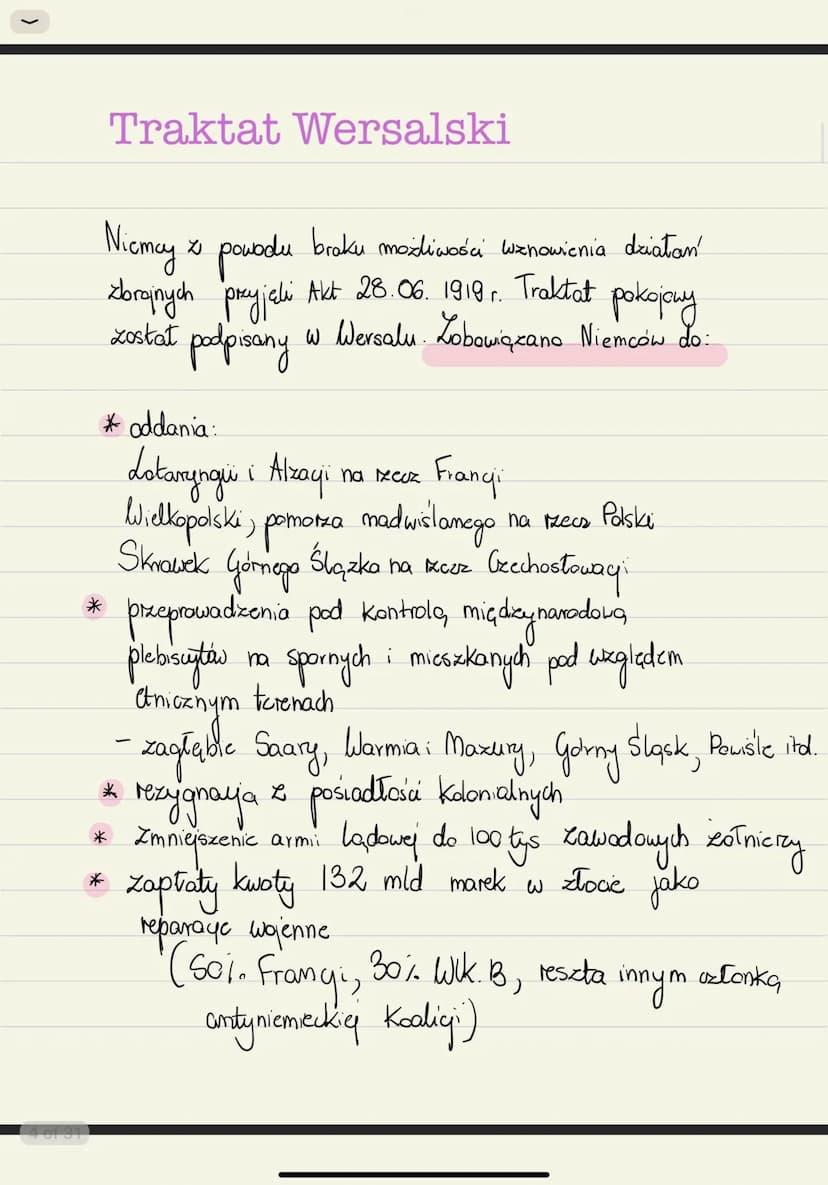 Traktat Wersalski
Niemcy z powodu braku możliwości wznowienia działań
zbrojnych przyjęli Akt 28.06. 1919 r. Traktat pokojowy
został podpisany w Wersalu. Zobowiązano Niemców do:
* oddania:
Lotaryngii i Alzacji na rzecz Francji
Wielkopolski, pomorza nadwiślanego na rzecz Polski
Skrawek Górnego Ślązka na rzecz Czechosłowacji
* przeprowadzenia pod kontrolą międzynarodową
plebiscytów na spornych i mieszkanych pod względem
etnicznym terenach
- zagłębie Saary, Warmia i Mazury, Górny Śląsk, Powiśle itd.
* rezygnacja z posiadłości kolonialnych
* Zmniejszenie armii lądowej do 100 tys zawodowych żołnierzy
* zapłaty kwoty 132 mld marek w złocie jako
reparacje wojenne
(50% Francji, 30% Wlk. B, reszta innym członką
antyniemieckiej Koalicji)
4 of 31